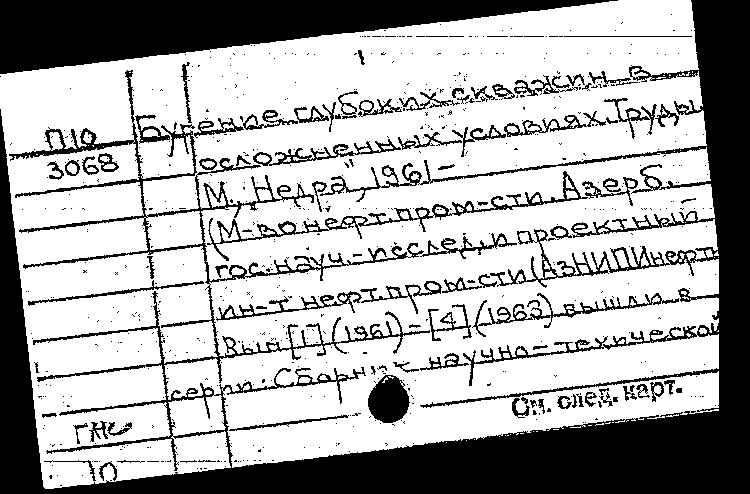 П10
3068
Бурение глубоких скважин в
осложненных условиях. Труды
М., „Недра", 1961–
(М-во нефт. пром-сти. Азерб.
гос. науч.-исслед. и проектный
ин-т нефт. пром-сти (АзНИПИнефть
Вып [1] (1961) – [4] (1963) вышли в
серии: Сборник научно-технической
См. след. карт.
10